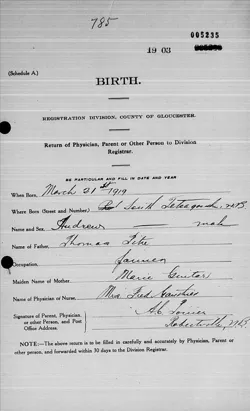 785
005235
19 03
(Schedule A.)
BIRTH.
REGISTRATION DIVISION, COUNTY OF GLOUCESTER.
Return of Physician, Parent or Other Person to Division
Registrar.
BE PARTICULAR AND FILL IN DATE AND YEAR
When Born, March 21st 1919
Where Born (Street and Number) South Tetagouche N.B.
Name and Sex, Andrew male
Name of Father, Thomas
Occupation, farmer
Maiden Name of Mother, Marie
Name of Physician or Nurse, Mrs Fred
Signature of Parent, Physician,
or other Person, and Post
Office Address. Robertville, N.B.
NOTE:—The above return is to be filled in carefully and accurately by Physician, Parent or
other person, and forwarded within 30 days to the Division Registrar.